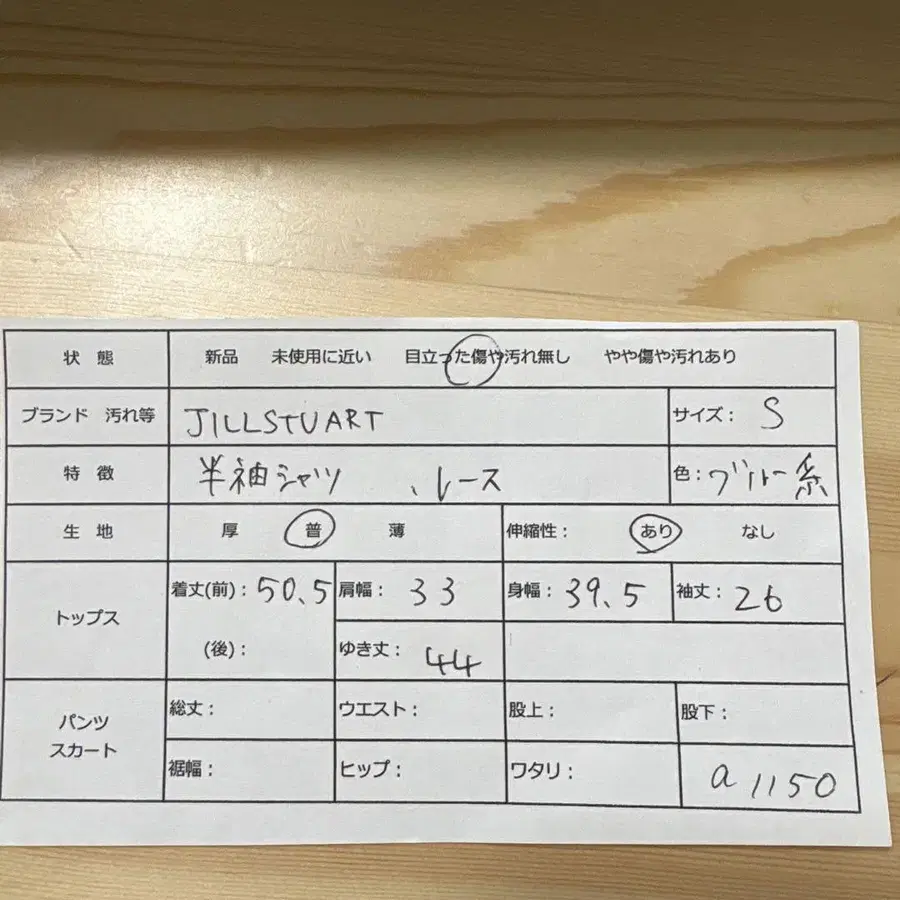 状 態 新品 未使用に近い 目立った傷や汚れ無し やや傷や汚れあり
ブランド 汚れ等 JILLSTUART サイズ: S
特 徴 半袖シャツ 、レース 色: ブルー系
生 地 厚 普 薄 伸縮性: あり なし
トップス 着丈(前): 50.5 肩幅: 33 身幅: 39.5 袖丈: 26
(後): ゆき丈: 44
パンツ スカート 総丈: ウエスト: 股上: 股下:
裾幅: ヒップ: ワタリ: a1150